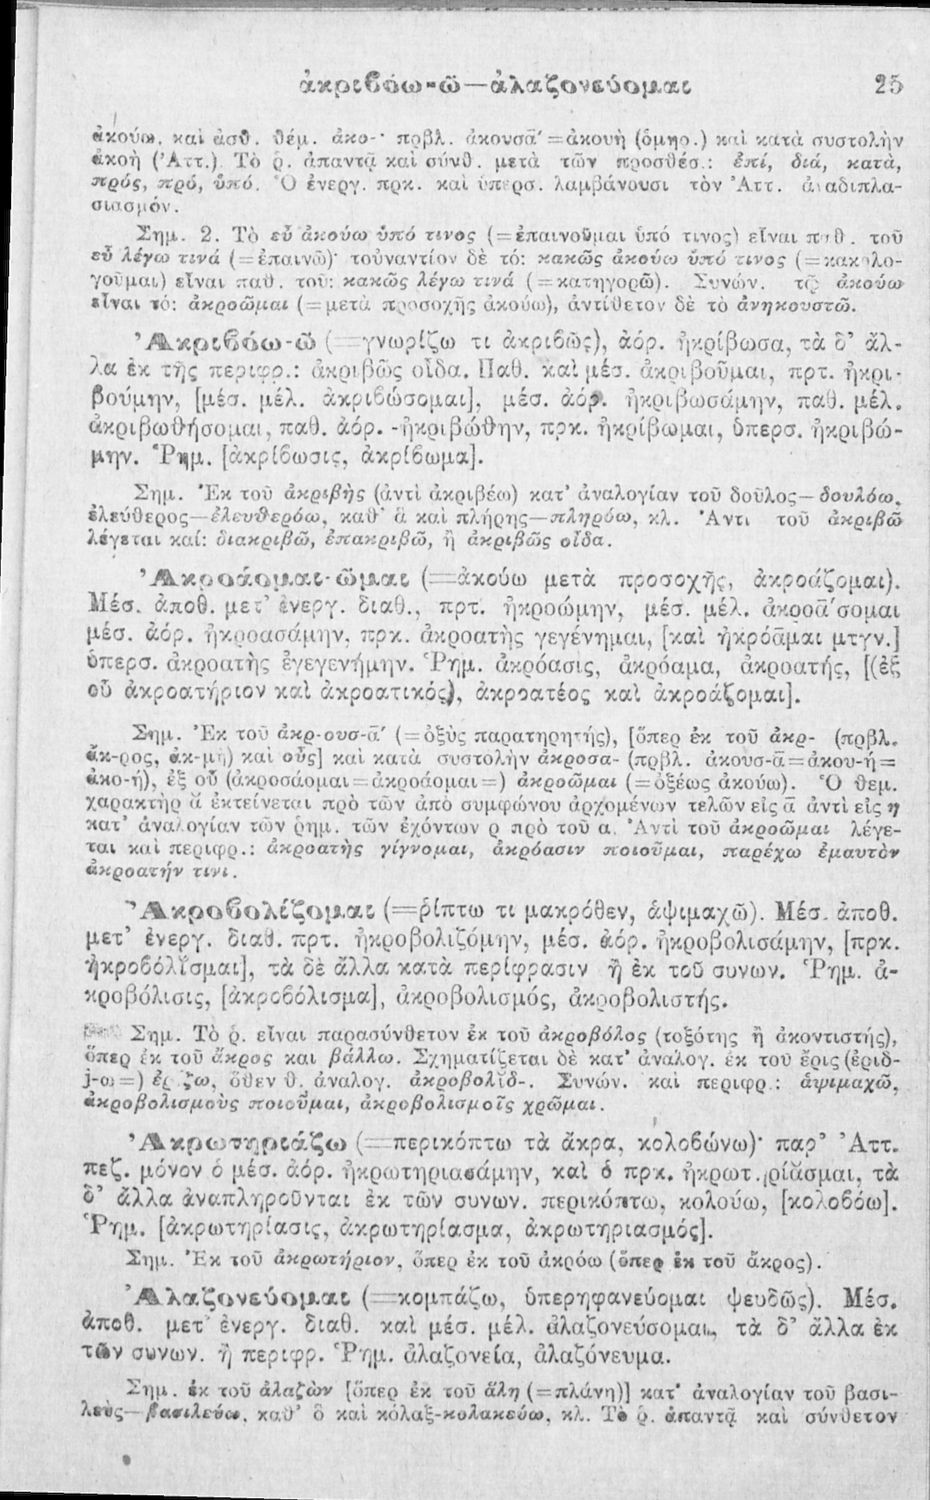 ἀκριβόω-ῶ—ἀλαζονεύομαι 25
ἀκούω, καὶ ἀσθ. θέμ. ἀκο-· πρβλ. ἀκουσᾱ́=ἀκουὴ (ὁμηρ.) καὶ κατὰ συστολὴν
ἀκοὴ (Ἀττ.). Τὸ ῥ. ἀπαντᾷ καὶ σύνθ. μετὰ τῶν προσθέσ.: ἐπί, διά, κατὰ,
πρός, πρό, ὑπό. Ὁ ἐνεργ. πρκ. καὶ ὑπερσ. λαμβάνουσι τὸν Ἀττ. ἀναδιπλα-
σιασμόν.
Σημ. 2. Τὸ εὖ ἀκούω ὑπό τινος (=ἐπαινοῦμαι ὑπό τινος) εἶναι παθ. τοῦ
εὖ λέγω τινά (=ἐπαινῶ)· τοὐναντίον δὲ τό: κακῶς ἀκούω ὑπό τινος (=κακολο-
γοῦμαι) εἶναι παθ. τοῦ: κακῶς λέγω τινά (=κατηγορῶ). Συνών. τῷ ἀκούω
εἶναι τό: ἀκροῶμαι (=μετὰ προσοχῆς ἀκούω), ἀντίθετον δὲ τὸ ἀνηκουστῶ.
Ἀκριβόω-ῶ (=γνωρίζω τι ἀκριβῶς), ἀόρ. ἠκρίβωσα, τὰ δ’ ἄλ-
λα ἐκ τῆς περιφρ.: ἀκριβῶς οἶδα. Παθ. καὶ μέσ. ἀκριβοῦμαι, πρτ. ἠκρι-
βούμην, [μέσ. μέλ. ἀκριβώσομαι], μέσ. ἀόρ. ἠκριβωσάμην, παθ. μέλ.
ἀκριβωθήσομαι, παθ. ἀόρ. -ἠκριβώθην, πρκ. ἠκρίβωμαι, ὑπερσ. ἠκριβώ-
μην. Ῥημ. [ἀκρίβωσις, ἀκρίβωμα].
Σημ. Ἐκ τοῦ ἀκριβὴς (ἀντὶ ἀκριβέω) κατ’ ἀναλογίαν τοῦ δοῦλος—δουλόω,
ἐλεύθερος—ἐλευθερόω, καθ’ ἃ καὶ πλήρης—πληρόω, κλ. Ἀντι τοῦ ἀκριβῶ
λέγεται καί: διακριβῶ, ἐπακριβῶ, ἢ ἀκριβῶς οἶδα.
Ἀκροάομαι-ῶμαι (=ἀκούω μετὰ προσοχῆς, ἀκροάζομαι).
Μέσ. ἀποθ. μετ’ ἐνεργ. διαθ., πρτ. ἠκροώμην, μέσ. μέλ. ἀκροᾱ́σομαι
μέσ. ἀόρ. ἠκροασάμην, πρκ. ἀκροατὴς γεγένημαι, [καὶ ἠκρόᾱμαι μτγν.]
ὑπερσ. ἀκροατὴς ἐγεγενήμην. Ῥημ. ἀκρόασις, ἀκρόαμα, ἀκροατής, [(ἐξ
οὗ ἀκροατήριον καὶ ἀκροατικός), ἀκροατέος καὶ ἀκροάζομαι].
Σημ. Ἐκ τοῦ ἀκρ-ουσ-ᾱ́ (=ὀξὺς παρατηρητής), [ὅπερ ἐκ τοῦ ἀκρ- (πρβλ.
ἄκ-ρος, ἀκ-μὴ) καὶ οὖς] καὶ κατὰ συστολὴν ἀκροσα- (πρβλ. ἀκουσ-ᾱ=ἀκου-ή=
ἀκο-ή), ἐξ οὗ (ἀκροσάομαι=ἀκροάομαι=) ἀκροῶμαι (=ὀξέως ἀκούω). Ὁ θεμ.
χαρακτὴρ ᾰ ἐκτείνεται πρὸ τῶν ἀπὸ συμφώνου ἀρχομένων τελῶν εἰς ᾱ ἀντὶ εἰς η
κατ’ ἀναλογίαν τῶν ῥημ. τῶν ἐχόντων ρ πρὸ τοῦ α. Ἀντὶ τοῦ ἀκροῶμαι λέγε-
ται καὶ περιφρ.: ἀκροατὴς γίγνομαι, ἀκρόασιν ποιοῦμαι, παρέχω ἐμαυτὸν
ἀκροατήν τινι.
Ἀκροβολίζομαι (=ῥίπτω τι μακρόθεν, ἁψιμαχῶ). Μέσ. ἀποθ.
μετ’ ἐνεργ. διαθ. πρτ. ἠκροβολιζόμην, μέσ. ἀόρ. ἠκροβολισάμην, [πρκ.
ἠκροβόλισμαι], τὰ δὲ ἄλλα κατὰ περίφρασιν ἢ ἐκ τοῦ συνων. Ῥημ. ἀ-
κροβόλισις, [ἀκροβόλισμα], ἀκροβολισμός, ἀκροβολιστής.
Σημ. Τὸ ῥ. εἶναι παρασύνθετον ἐκ τοῦ ἀκροβόλος (τοξότης ἢ ἀκοντιστής),
ὅπερ ἐκ τοῦ ἄκρος και βάλλω. Σχηματίζεται δὲ κατ’ ἀναλογ. ἐκ τοῦ ἔρις (ἐριδ-
j-ω=) ἐρίζω, ὅθεν θ. ἀναλογ. ἀκροβολῐδ-. Συνών. καὶ περιφρ.: ἁψιμαχῶ,
ἀκροβολισμοὺς ποιοῦμαι, ἀκροβολισμοῖς χρῶμαι.
Ἀκρωτηριάζω (=περικόπτω τὰ ἄκρα, κολοβώνω)· παρ’ Ἀττ.
πεζ. μόνον ὁ μέσ. ἀόρ. ἠκρωτηριασάμην, καὶ ὁ πρκ. ἠκρωτηρίᾰσμαι, τὰ
δ’ ἄλλα ἀναπληροῦνται ἐκ τῶν συνων. περικόπτω, κολούω, [κολοβόω].
Ῥημ. [ἀκρωτηρίασις, ἀκρωτηρίασμα, ἀκρωτηριασμός].
Σημ. Ἐκ τοῦ ἀκρωτήριον, ὅπερ ἐκ τοῦ ἀκρόω (ὅπερ ἐκ τοῦ ἄκρος).
Ἀλαζονεύομαι (=κομπάζω, ὑπερηφανεύομαι ψευδῶς). Μέσ.
ἀποθ. μετ’ ἐνεργ. διαθ. καὶ μέσ. μέλ. ἀλαζονεύσομαι, τὰ δ’ ἄλλα ἐκ
τῶν συνων. ἢ περιφρ. Ῥημ. ἀλαζονεία, ἀλαζόνευμα.
Σημ. ἐκ τοῦ ἀλαζὼν [ὅπερ ἐκ τοῦ ἄλη (=πλάνη)] κατ’ ἀναλογίαν τοῦ βασι-
λεὺς—βασιλεύω, καθ’ ὃ καὶ κόλαξ-κολακεύω, κλ. Τὸ ῥ. ἀπαντᾷ καὶ σύνθετον